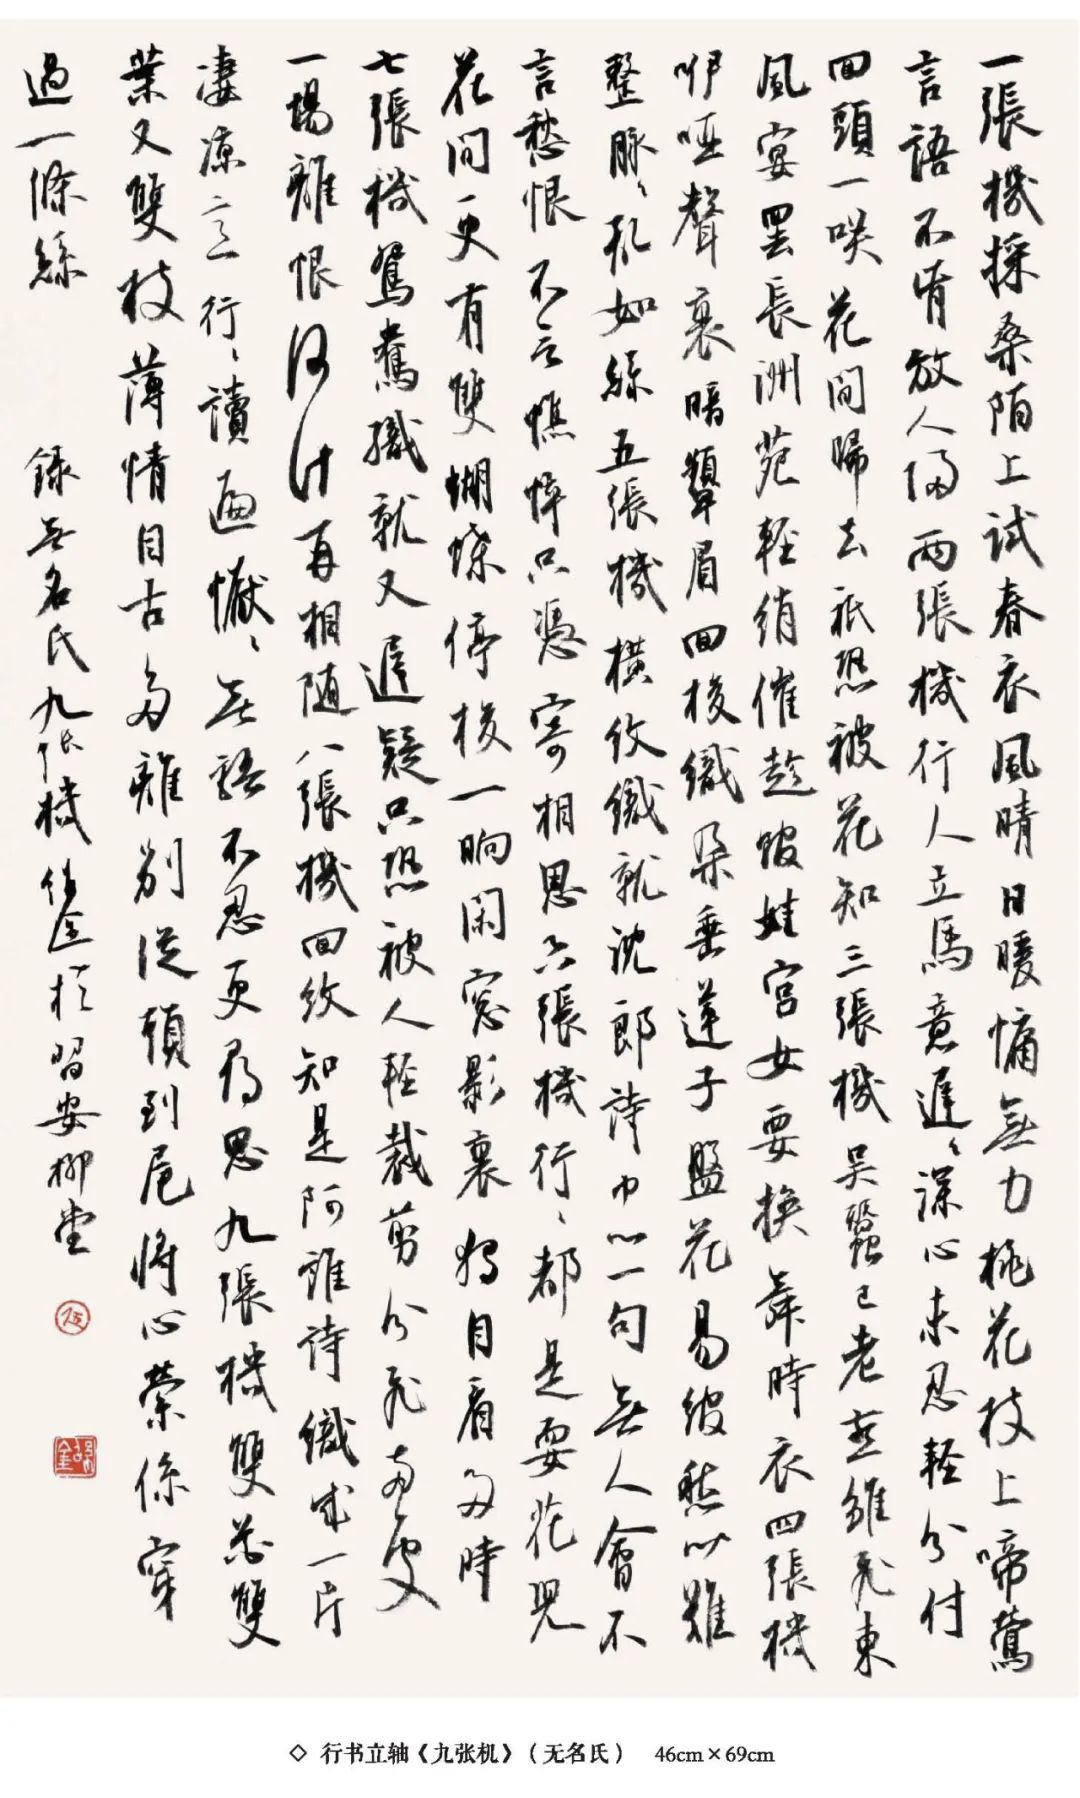 一張機採桑陌上試春衣風晴日暖慵無力桃花枝上啼鶯
言語不肯放人歸兩張機行人立馬意遲〻深心未忍輕分付
回頭一咲花間歸去祇恐被花知三張機吳蠶已老燕雛飛東
風宴罷長洲苑輕綃催趁館娃宮女要換舞時衣四張機
咿啞聲裏暗顰眉回梭織朵垂蓮子盤花易綰愁心難
整脉〻亂如絲五張機橫紋織就沈郎詩中心一句無人會不
言愁恨不言憔悴只憑寄相思六張機行〻都是耍花兒
花間更有雙蝴蝶停梭一晌閑窓影裏獨自看多時
七張機鴛鴦織就又遲疑只恐被人輕裁剪分飛兩處
一場離恨何計再相隨八張機回紋知是阿誰詩織成一片
凄涼意行〻讀遍懨〻無語不忍更尋思九張機雙花雙
葉又雙枝薄情自古多離別從頭到尾將心縈係穿
過一條絲
錄無名氏九張機 於習安柳堂
◇ 行书立轴《九张机》（无名氏） 46cm×69cm